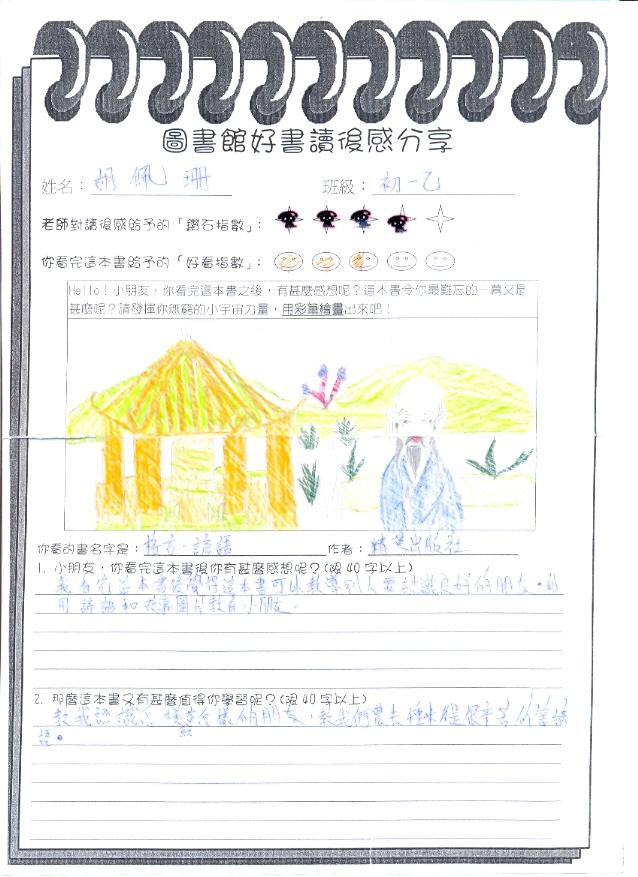 圖書館好書讀後感分享
姓名：胡佩珊 班級：初一乙
老師對讀後感給予的「鑽石指數」：
你看完這本書給予的「好看指數」：
Hello！小朋友，你看完這本書之後，有甚麼感想呢？這本書令你最難忘的一幕又是
甚麼呢？請發揮你無窮的小宇宙力量，用彩筆繪畫出來吧！
你看的書名字是：格言‧諺語 作者：精英出版社
1. 小朋友，你看完這本書後你有甚麼感想呢？(限40字以上)
我看完這本書後覺得這本書可以教導別人要認識良好的朋友。
用諺語和故事圖片教育小朋友。
2. 那麼這本書又有甚麼值得你學習呢？(限40字以上)
教我認識 樣的朋友，教我們農夫種水稻是很辛苦的
語。